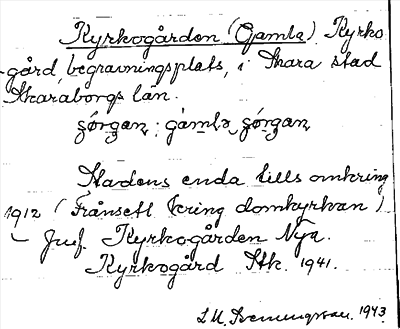 Kyrkogården (Gamla) Kyrko
-gård, begravningsplats, i Skara stad
Skaraborgs län.
şǫ́rgan, gàmla şǫ́rgan
Stadens enda tills omkring
1912 (Frånsett kring domkyrkan)
– Jmf. Kyrkogården Nya.
Kyrkogård Stk. 1941.
1943